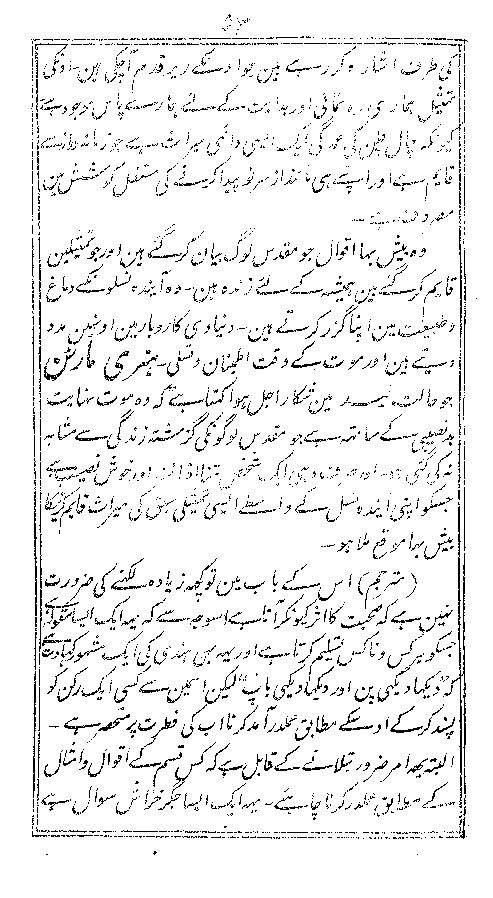 ۵۳
کی طرف اشارہ کر رہے ہین جو اونکے زیر قدم آچکی ہین۔ اونکی
تمثیل ہماری رہ نمائی اور ہدایت کے لئے ہمارے پاس موجود ہے
کیونکہ چال چلن کی عمدگی ایک ایسی دائمی میراث ہے جو زمانہ دراز سے
قایم ہے اور اپنے ہی مانند از سر نو پیدا کرنے کی مستقل کوشش مین
مصروف ہے۔
وہ بیش بہا اقوال جو مقدس لوگ بیان کر گئے ہین اور جو تمثیلین
قایم کر گئے ہین ہمیشہ کے لئے زندہ ہین۔ وہ آیندہ نسلونکے دماغ
وطبیعت مین اپنا گزر کرتے ہین۔ دنیاوی کاروبار مین اونہین مدد
دیتے ہین اور موت کے وقت اطمینان وتسلی۔ ہنری مارٹن
جو حالت مین شکار اجل ہوا کہتا ہے کہ وہ موت نہایت
بدنصیبی کے ساتہہ ہے جو مقدس لوگونکی گزشتہ زندگی سے مشابہ
نہ کی گئی ہو۔ اور صرف وہی ایک شخص بڑا اور خوش نصیب ہے
جسکو اپنی آیندہ نسل کے واسطے ایسی تمثیلی سبق کی میراث قایم کرنیکا
بیش بہا موقع ملا ہو۔
(مترجم) اس کے باب مین تو کچہہ زیادہ لکہنے کی ضرورت
نہین ہے کہ صحبت کا اثر کیونکر آتا ہے اسوجہ سے کہ یہہ ایک ایسا مقولہ ہے
جسکو ہر کس و ناکس تسلیم کرتا ہے اور یہہ بہی ہندی کی ایک مشہور کہاوت ہے
کہ ”دیکہا دیکہی پن اور دیکہا دیکہی پاپ“ لیکن اسمین سے کسی ایک رکن کو
پسند کر کے اوسکے مطابق عملدرآمد کرنا اب کی فطرت پر منحصر ہے۔
البتہ یہہ امر ضرور بتلانے کے قابل ہے کہ کس قسم کے اقوال وامثال
کے مطابق عملدر کرنا چاہئے۔ یہہ ایک ایسا جگر خراش سوال ہے